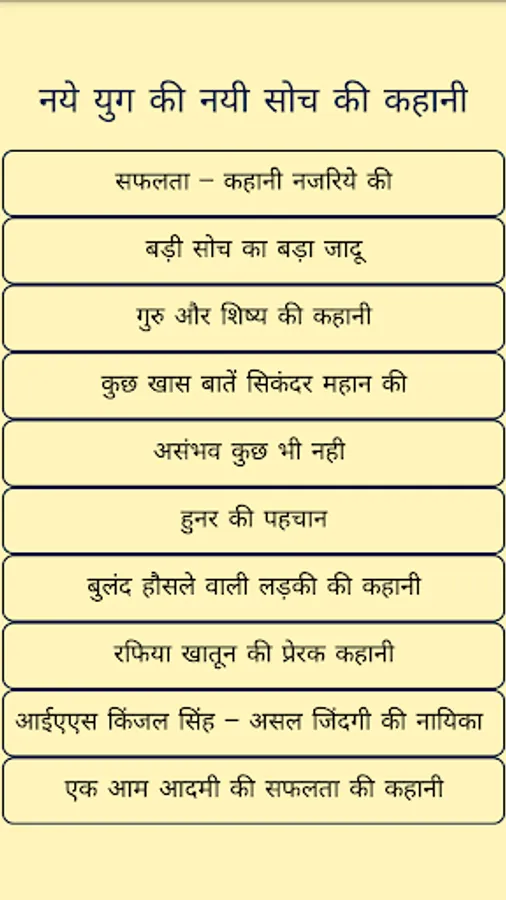 नये युग की नयी सोच की कहानी
सफलता – कहानी नजरिये की
बड़ी सोच का बड़ा जादू
गुरु और शिष्य की कहानी
कुछ खास बातें सिकंदर महान की
असंभव कुछ भी नही
हुनर की पहचान
बुलंद हौसले वाली लड़की की कहानी
रफिया खातून की प्रेरक कहानी
आईएएस किंजल सिंह – असल जिंदगी की नायिका
एक आम आदमी की सफलता की कहानी